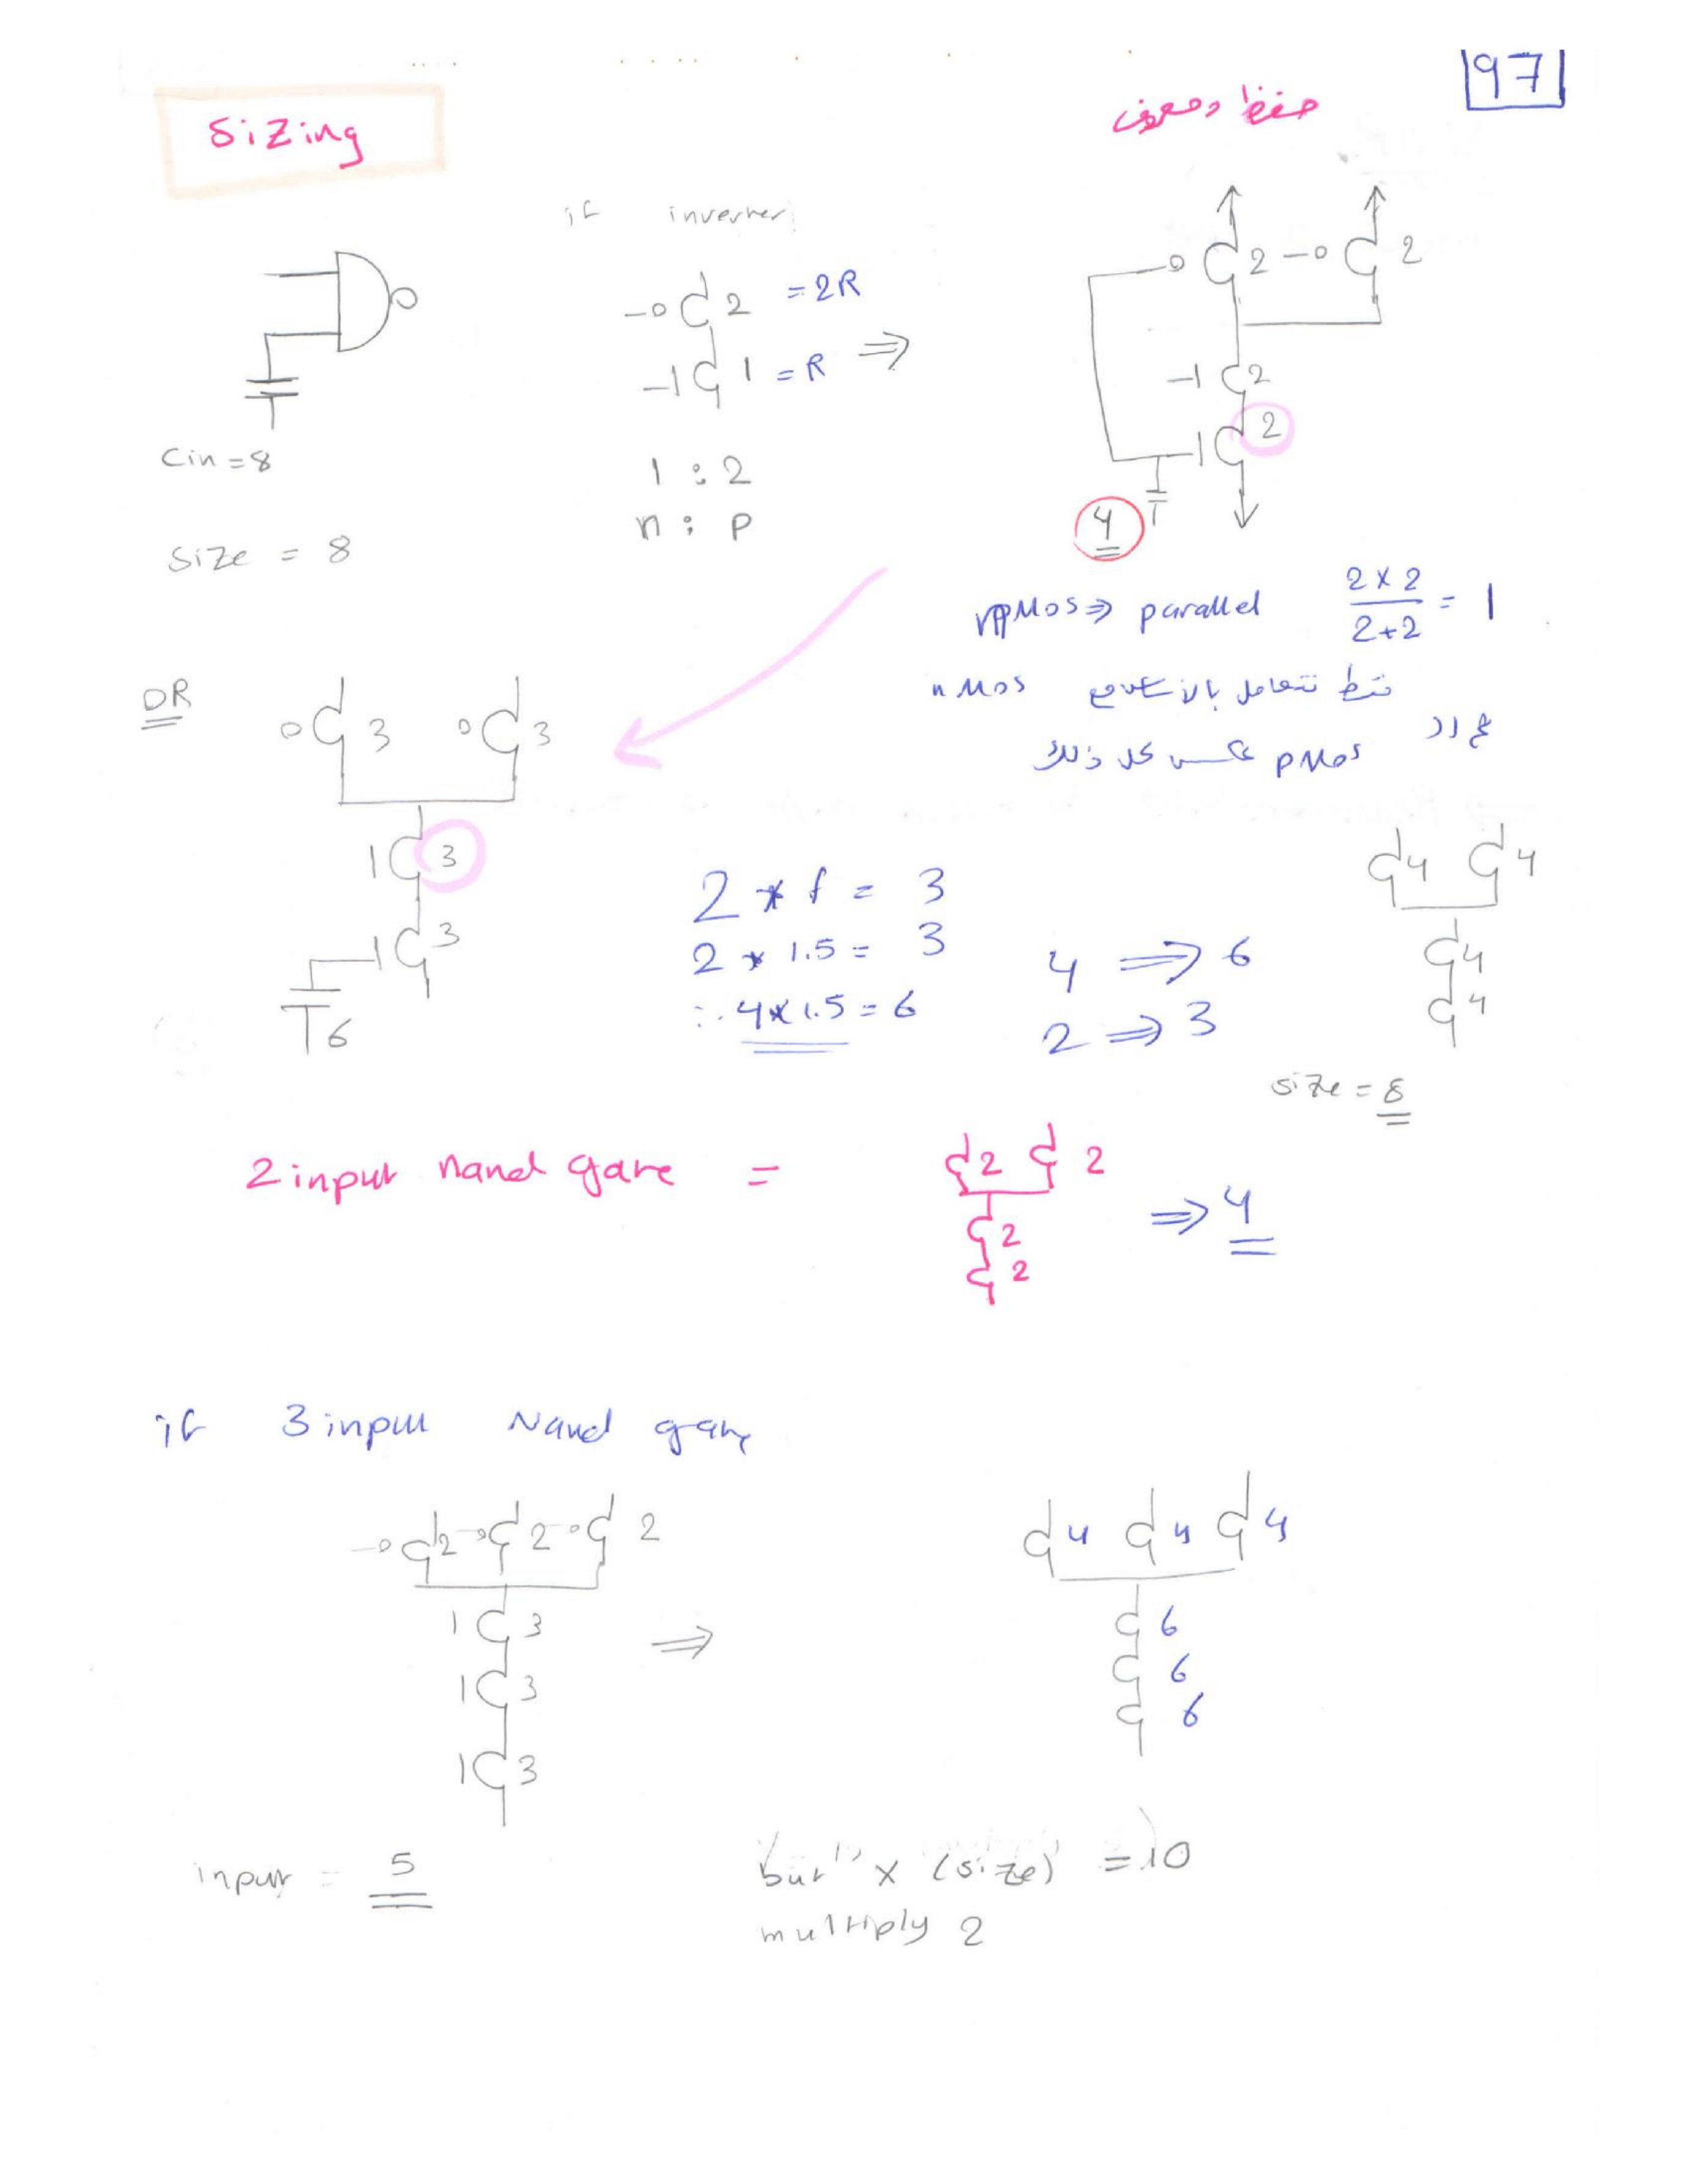 97
Sizing
حفظ ومعرف
if inverter
2 = 2R
1 = R
⇒
1 : 2
n : p
Cin = 8
Size = 8
2 2
2
2
4
pMos ⇒ parallel 2 x 2 / 2+2 = 1
nMos فقط نتعامل بالا
pMos عكس كل ذلك
OR
3 3
3
3
6
2 * f = 3
2 * 1.5 = 3
∴ 4 * 1.5 = 6
4 ⇒ 6
2 ⇒ 3
4 4
4
4
size = 8
2 input nand gate = 2 2
2
2
⇒ 4
if 3 input Nand gate
2 2 2
3
3
3
⇒
4 4 4
6
6
6
input = 5
but x (size) = 10
multiply 2